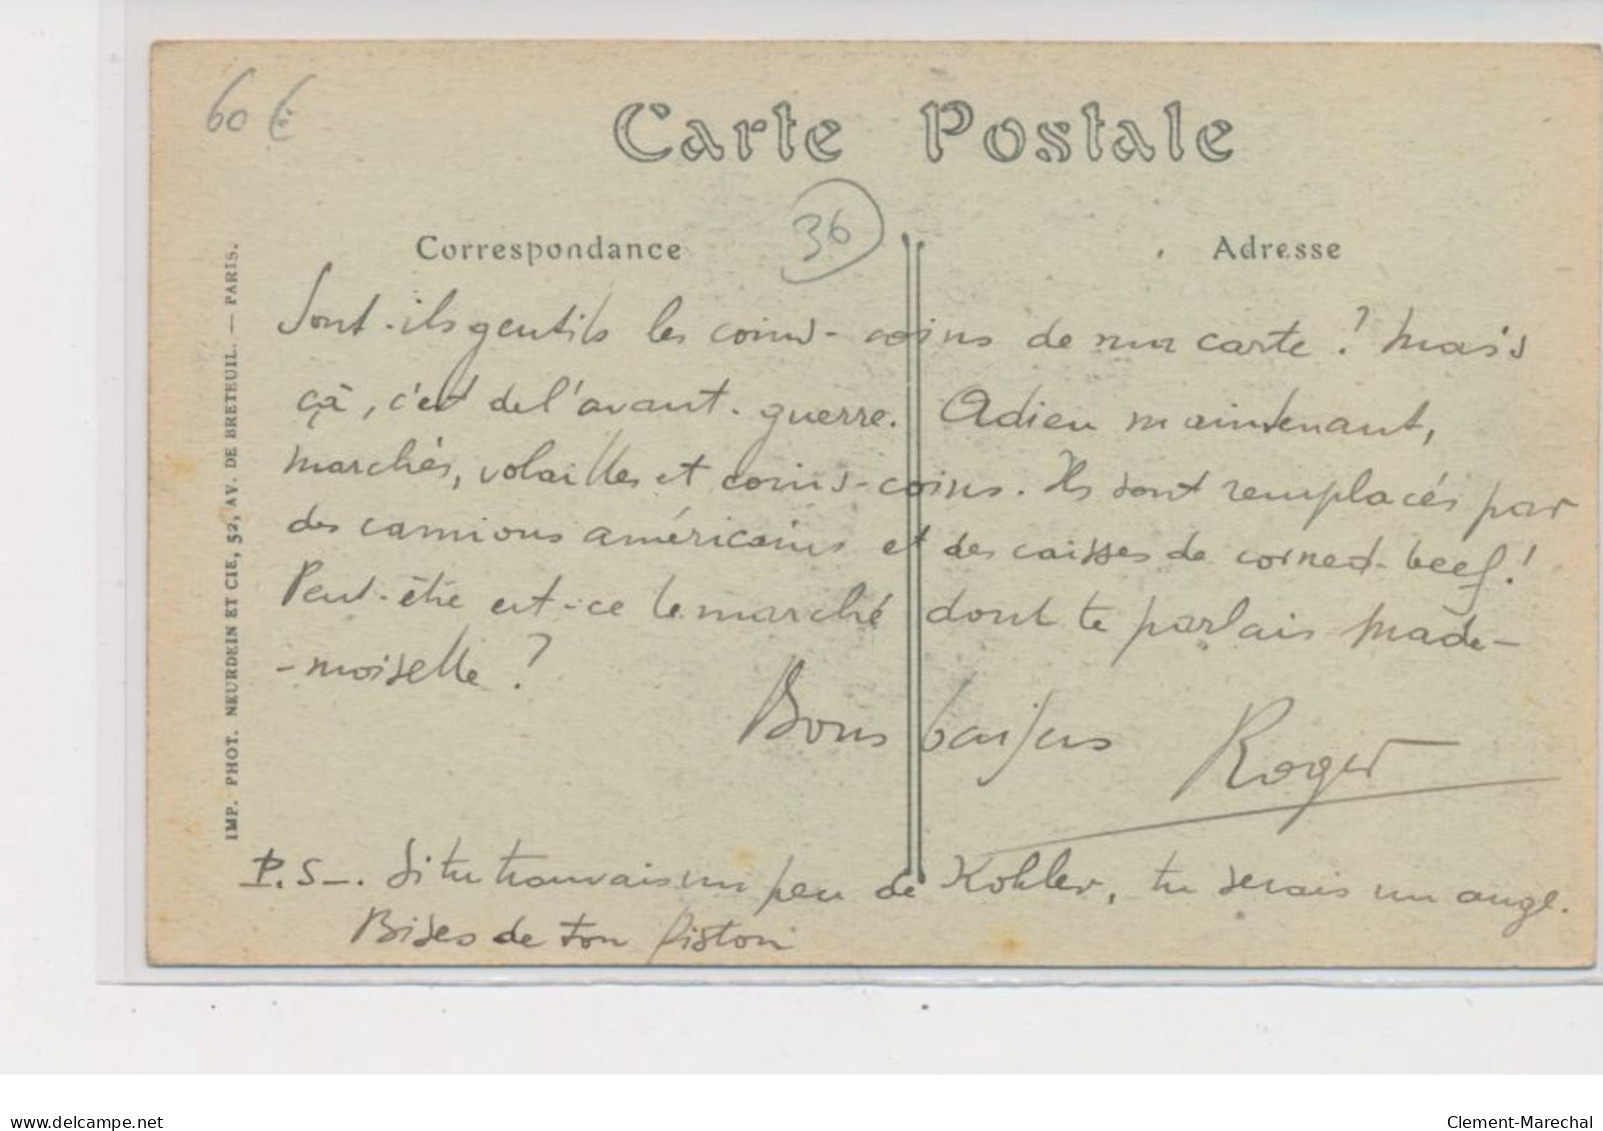 60 €
Carte Postale
36
Correspondance
Adresse
Sont-ils gentils les coins-coins de ma carte ? Mais
çà, c'est de l'avant-guerre. Adieu maintenant,
marchés, volailles et coins-coins. Ils sont remplacés par
des camions américains et des caisses de corned-beef !
Peut-être est-ce le marché dont te parlais Made-
-moiselle ?
Bons baisers Roger
P.S-. Si tu trouvais un peu de Kohler, tu serais un ange.
Bises de ton Piston
IMP. PHOT. NEURDEIN ET CIE, 52, AV. DE BRETEUIL. — PARIS.
www.delcampe.net
Clement-Marechal